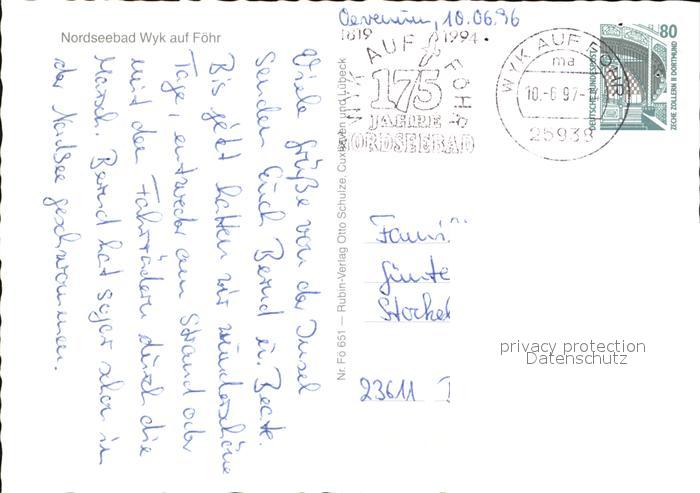 Nordseebad Wyk auf Föhr
Viele Grüße von der Insel
senden Euch Bernd u. Beate.
Bis jetzt hatten wir wunderschöne
Tage, entweder am Strand oder
mit den Fahrrädern durch die
Marsch. Bernd hat sogar schon in
der Nordsee geschwommen.
Nr. Fö 651 — Rubin-Verlag Otto Schulze, Cuxhaven und Lübeck
Oevenum, 10.06.96
1819 1994
WYK AUF FÖHR
175
JAHRE
NORDSEEBAD
WYK AUF FÖHR
ma
10.-6 97-
25938
80
DEUTSCHE BUNDESPOST
ZECHE ZOLLERN II DORTMUND
Fami
Günte
Stockel
23611
privacy protection
Datenschutz